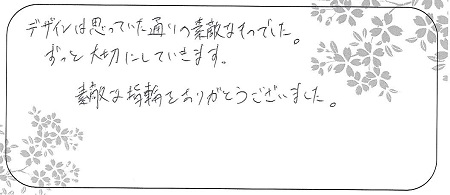 デザインは思っていた通りの素敵なものでした。
ずっと大切にしていきます。
素敵な指輪をありがとうございました。